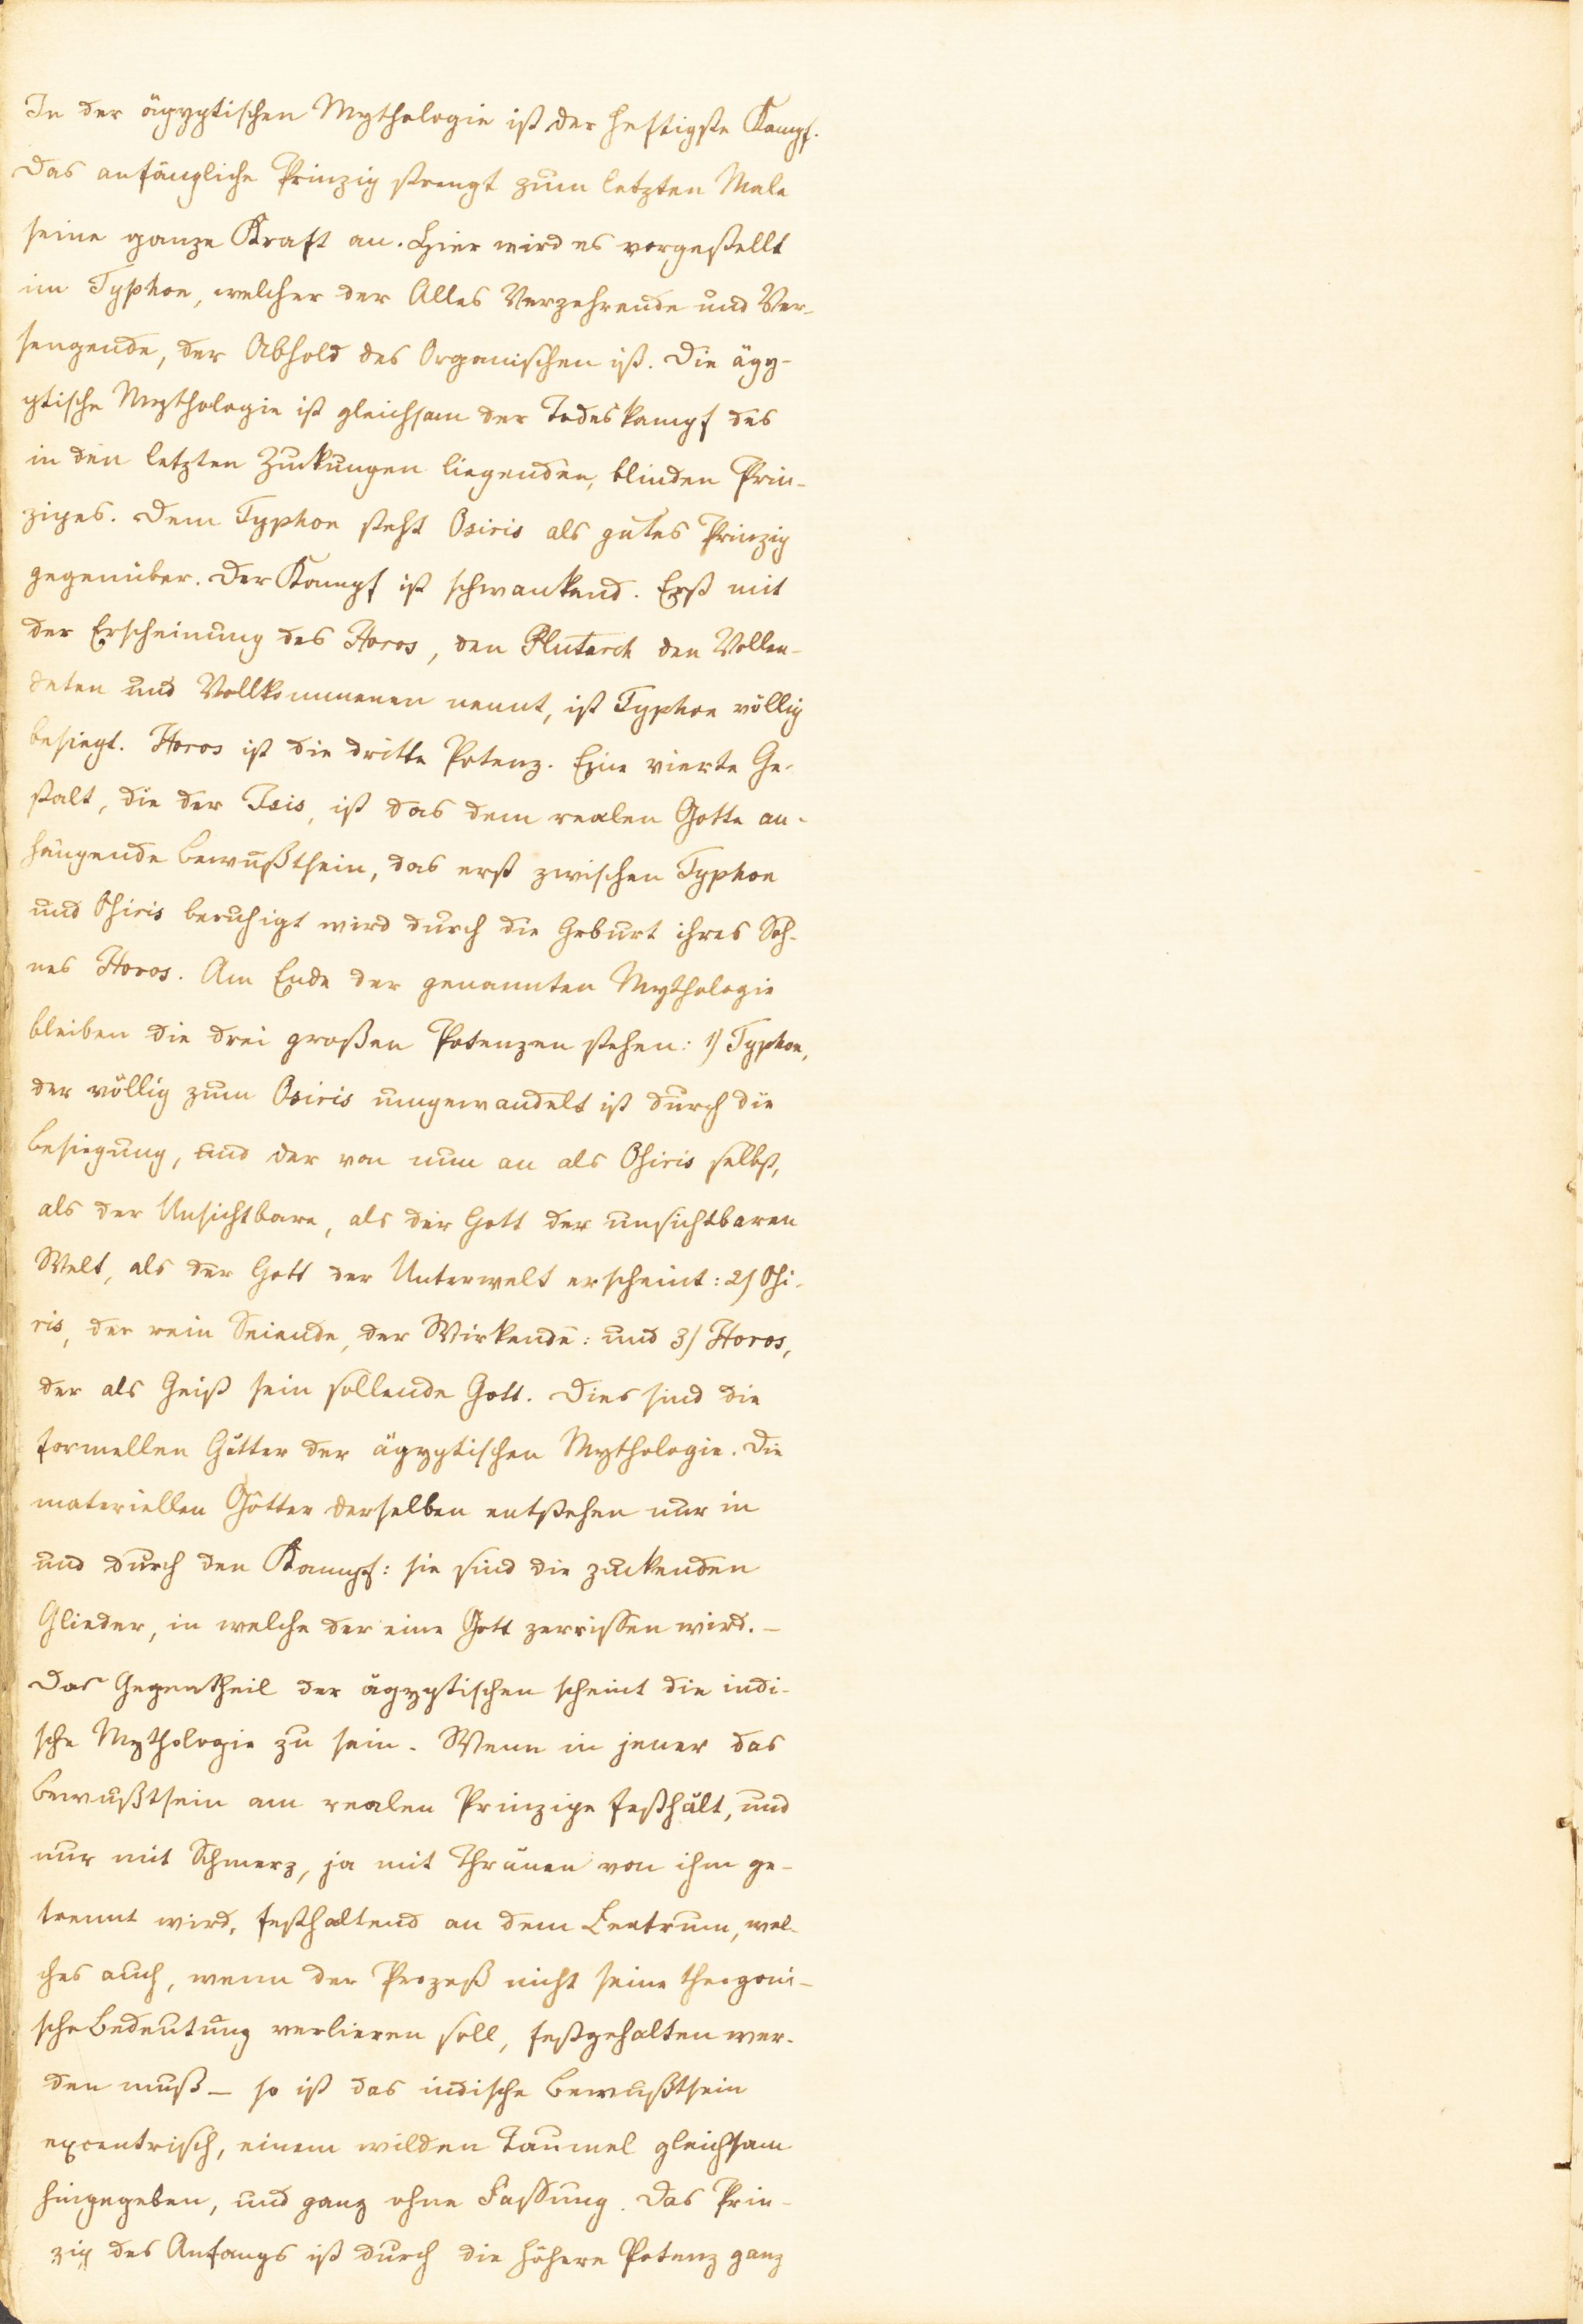 In der ägyptischen Mythologie ist der heftigste Kampf.
Das anfängliche Prinzip strengt zum letzten Male
seine ganze Kraft an. Hier wird es vorgestellt
im Typhon, welcher der Alles Verzehrende und Ver-
sengende, der Abhold des Organischen ist. Die ägy-
ptische Mythologie ist gleichsam der Todeskampf des
in den letzten Zuckungen liegenden, blinden Prin-
zipes. Dem Typhon steht Osiris als gutes Prinzip
gegenüber. Der Kampf ist schwankend. Erst mit
der Erscheinung des Horos, den Plutarch den Vollen-
deten und Vollkommenen nennt, ist Typhon völlig
besiegt. Horos ist die dritte Potenz. Eine vierte Ge-
stalt, die der Isis, ist das dem realen Gotte an-
hängende Bewußtsein, das erst zwischen Typhon
und Osiris beruhigt wird durch die Geburt ihres Soh-
nes Horos. Am Ende der genannten Mythologie
bleiben die drei großen Potenzen stehen: 1) Typhon,
der völlig zum Osiris umgewandelt ist durch die
Besiegung, und der von nun an als Osiris selbst,
als der Unsichtbare, als der Gott der unsichtbaren
Welt, als der Gott der Unterwelt erscheint: 2) Osi-
ris, der rein Seiende, der Wirkende: und 3) Horos,
der als Geist sein sollende Gott. Dies sind die
formellen Götter der ägyptischen Mythologie. Die
materiellen Götter derselben entstehen nur in
und durch den Kampf: sie sind die zuckenden
Glieder, in welche der eine Gott zerrissen wird. –
Das Gegentheil der ägyptischen scheint die indi-
sche Mythologie zu sein. Wenn in jener das
Bewußtsein am realen Prinzipe festhält, und
nur mit Schmerz, ja mit Thränen von ihm ge-
trennt wird, festhaltend an dem Centrum, wel-
ches auch, wenn der Prozeß nicht seine theogoni-
sche Bedeutung verlieren soll, festgehalten wer-
den muß – so ist das indische Bewußtsein
excentrisch, einem wilden Taumel gleichsam
hingegeben, und ganz ohne Fassung. Das Prin-
zip des Anfangs ist durch die höhere Potenz ganz